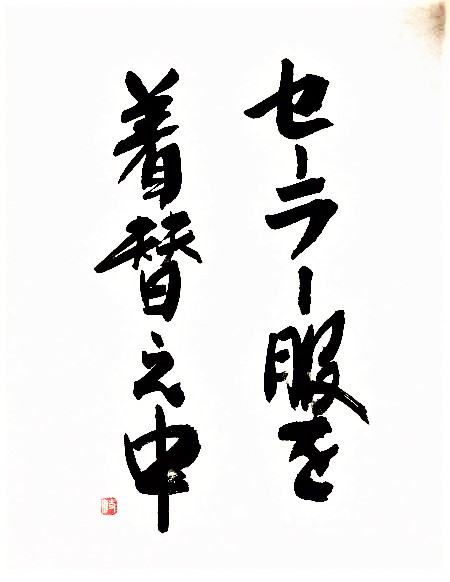 セーラー服を
着替え中